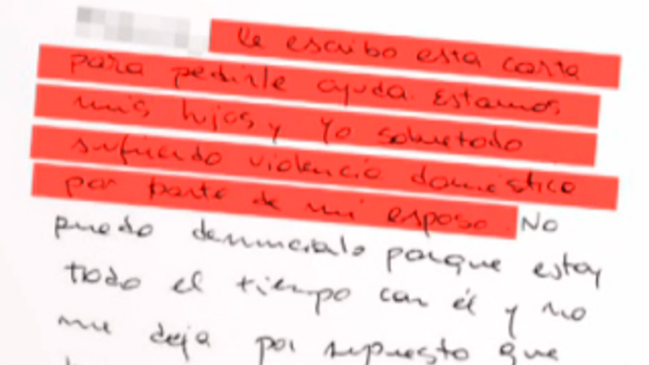 le escribo esta carta
para pedirle ayuda. Estamos
mis hijos y yo sobretodo
sufriendo violencia doméstica
por parte de mi esposo. No
puedo denunciarlo porque estoy
todo el tiempo con él y no
me deja por supuesto que